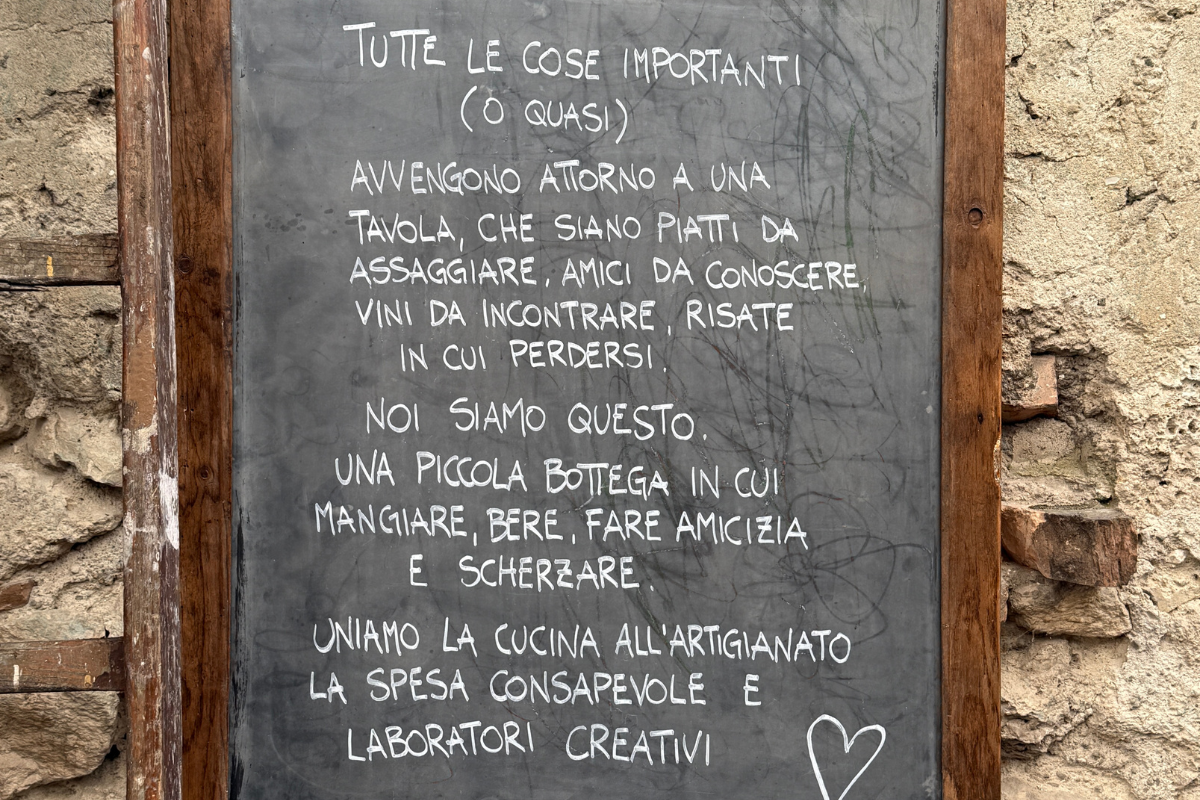 TUTTE LE COSE IMPORTANTI
(O QUASI)
AVVENGONO ATTORNO A UNA
TAVOLA, CHE SIANO PIATTI DA
ASSAGGIARE, AMICI DA CONOSCERE,
VINI DA INCONTRARE, RISATE
IN CUI PERDERSI.
NOI SIAMO QUESTO.
UNA PICCOLA BOTTEGA IN CUI
MANGIARE, BERE, FARE AMICIZIA
E SCHERZARE.
UNIAMO LA CUCINA ALL'ARTIGIANATO
LA SPESA CONSAPEVOLE E
LABORATORI CREATIVI